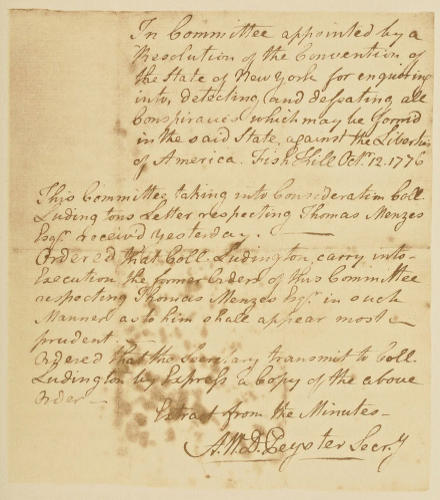 In Committee appointed by a
Resolution of the Convention of
the State of New York for enquiring
into, detecting and defeating all
Conspiracies which may be formed
in the said State, against the Liberties
of America. Fish Kill Octr. 12. 1776
This Committee taking into Consideration Coll.
Ludingtons Letter respecting Thomas Menzes
Esqr. receiv'd yesterday. —
Ordered that Coll. Ludington, carry into
Execution the former Orders of this Committee
respecting Thomas Menzes Esqr. in such
Manner as to him shall appear most
prudent —
Ordered that the Secretary transmit to Coll.
Ludington by Express a Copy of the above
Order —
Extract from the Minutes —
A. W. D. Peyster Secry